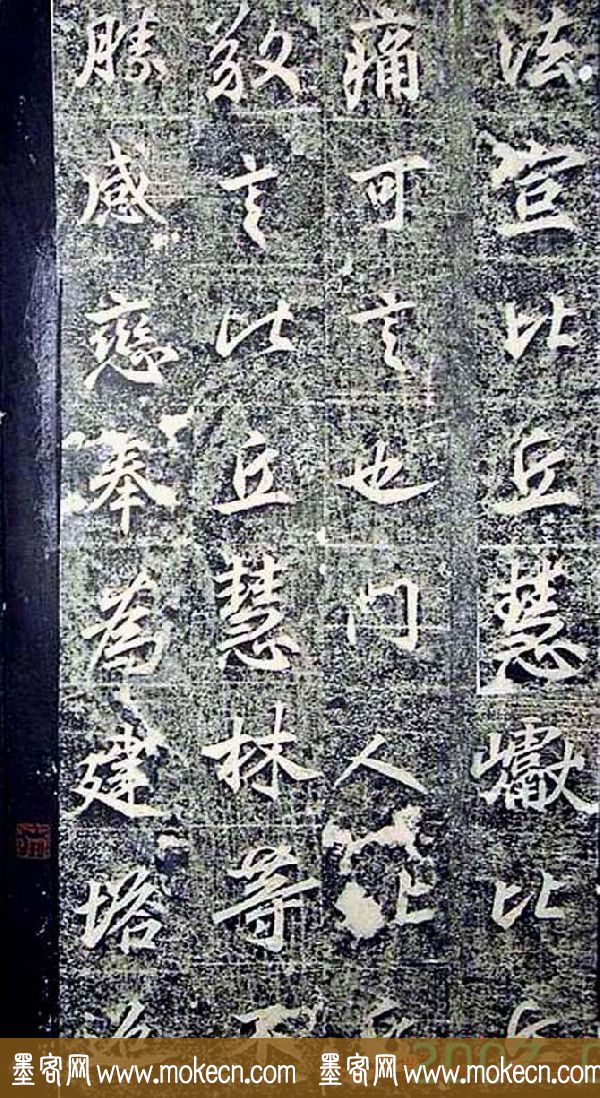 法宣比丘慧巘比丘
痛可言也門人比丘
敬言比丘慧林等不
勝感戀奉為建塔
墨客网 www.mokecn.com 墨客网 www.mokecn.com